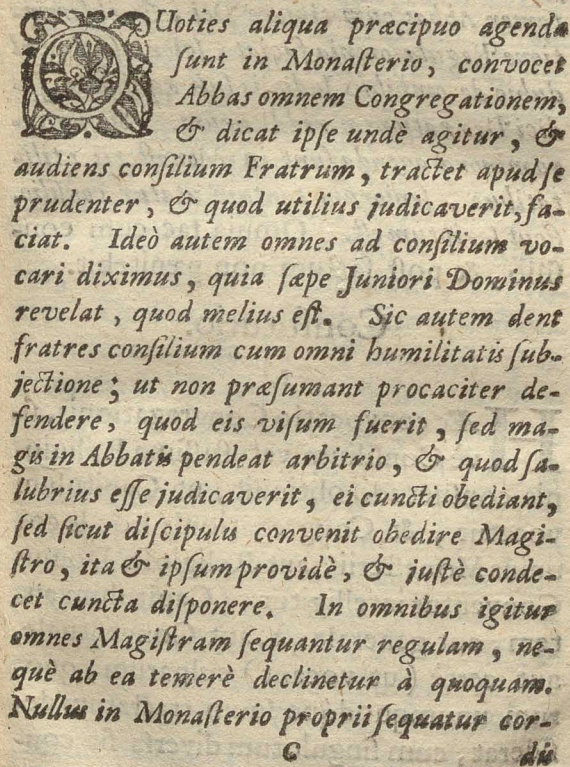 QUoties aliqua præcipuo agenda
ſunt in Monaſterio, convocet
Abbas omnem Congregationem,
& dicat ipſe undè agitur, &
audiens conſilium Fratrum, tractet apud ſe
prudenter, & quod utilius judicaverit, fa-
ciat. Ideò autem omnes ad conſilium vo-
cari diximus, quia ſæpe Juniori Dominus
revelat, quod melius eſt. Sic autem dent
fratres conſilium cum omni humilitatis ſub-
jectione; ut non præſumant procaciter de-
fendere, quod eis viſum fuerit, ſed ma-
gis in Abbatis pendeat arbitrio, & quod ſa-
lubrius eſſe judicaverit, ei cuncti obediant,
ſed ſicut diſcipulis convenit obedire Magi-
ſtro, ita & ipſum providè, & juſtè conde-
cet cuncta diſponere. In omnibus igitur
omnes Magiſtram ſequantur regulam, ne-
què ab ea temerè declinetur à quoquam.
Nullus in Monaſterio proprii ſequatur cor-
C
dis